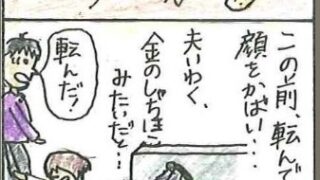 この前、転んで
顔をかばい…
夫いわく、
金のしゃちほこ
みたいだと…
転んだ!